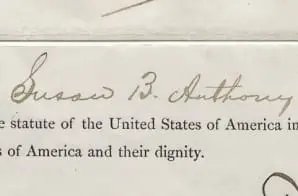 Susan B. Anthony
e statute of the United States of America in
s of America and their dignity.